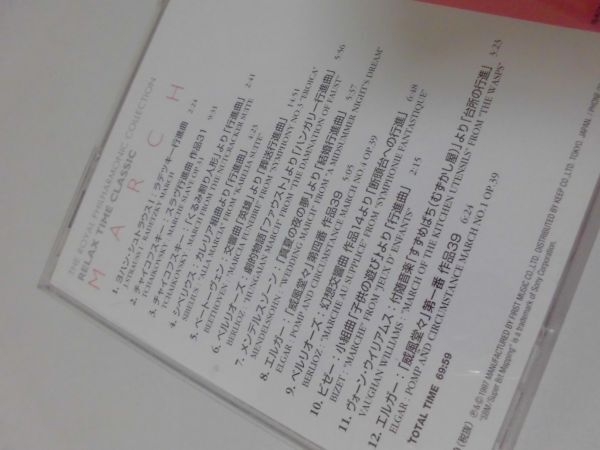 THE ROYAL PHILHARMONIC COLLECTION
RELAX TIME CLASSIC
MARCH
1. ヨハン・シュトラウスI：ラデツキー行進曲 2:24
J.STRAUSS I: RADETZKY MARCH
2. チャイコフスキー：スラヴ行進曲 作品31 9:31
TCHAIKOVSKY: MARCHE SLAVE OP.31
3. チャイコフスキー：「くるみ割り人形」より「行進曲」 2:41
TCHAIKOVSKY: MARCH FROM THE NUTCRACKER SUITE
4. シベリウス：カレリア組曲より「行進曲」 4:25
SIBELIUS: "ALLA MARCIA" FROM "KARELIA SUITE"
5. ベートーヴェン：交響曲「英雄」より「葬送行進曲」 14:51
BEETHOVEN: "MARCIA FUNEBRE" FROM "SYMPHONY NO.3 "EROICA"
6. ベルリオーズ：劇的物語「ファウスト」より「ハンガリー行進曲」 5:56
BERLIOZ: "HUNGARIAN MARCH" FROM "THE DAMNATION OF FAUST"
7. メンデルスゾーン：「真夏の夜の夢」より「結婚行進曲」 5:37
MENDELSSOHN: "WEDDING MARCH" FROM "A MIDSUMMER NIGHT'S DREAM"
8. エルガー：「威風堂々」第四番 作品39 5:05
ELGAR: POMP AND CIRCUMSTANCE MARCH NO.4 OP.39
9. ベルリオーズ：幻想交響曲 作品14より「断頭台への行進」 6:48
BERLIOZ: "MARCHE AU SUPPLICE" FROM "SYMPHONIE FANTASTIQUE"
10. ビゼー：小組曲「子供の遊び」より「行進曲」 2:15
BIZET: "MARCHE" FROM "JEUX D'ENFANTS"
11. ヴォーン・ウィリアムス：付随音楽「すずめばち(むずかし屋)」より「台所の行進」 3:23
VAUGHAN WILLIAMS: "MARCH OF THE KITCHEN UTENSILS" FROM "THE WASPS"
12. エルガー：「威風堂々」第一番 作品39 6:24
ELGAR: POMP AND CIRCUMSTANCE MARCH NO.1 OP.39
TOTAL TIME 69:59
(税抜) ℗&©1997 MANUFACTURED BY FIRST MUSIC CO.,LTD. DISTRIBUTED BY KEEP CO.,LTD. TOKYO, JAPAN
"SBM/Super Bit Mapping" is a trademark of Sony Corporation.